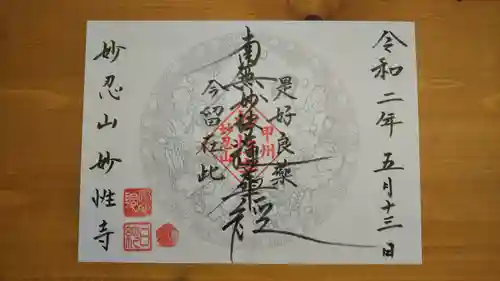 令和二年五月十三日
是好良薬
南無妙法蓮華経
今留在此
甲州
妙忍山
妙忍山妙性寺